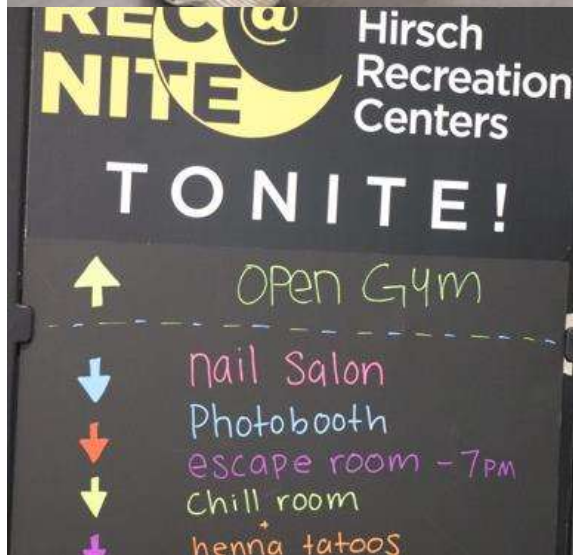 REC@
NITE
Hirsch
Recreation
Centers
TONITE!
OPen Gym
nail Salon
Photobooth
escape room - 7PM
Chill room
+
henna tatoos